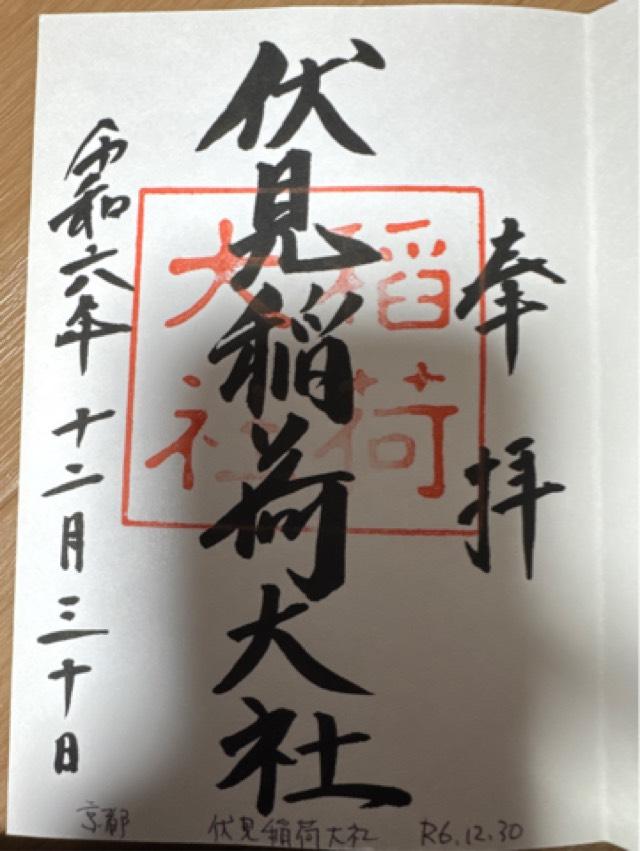 奉拝
伏見稲荷大社
稲荷
大社
令和六年十二月三十日
京都 伏見稲荷大社 R6.12.30